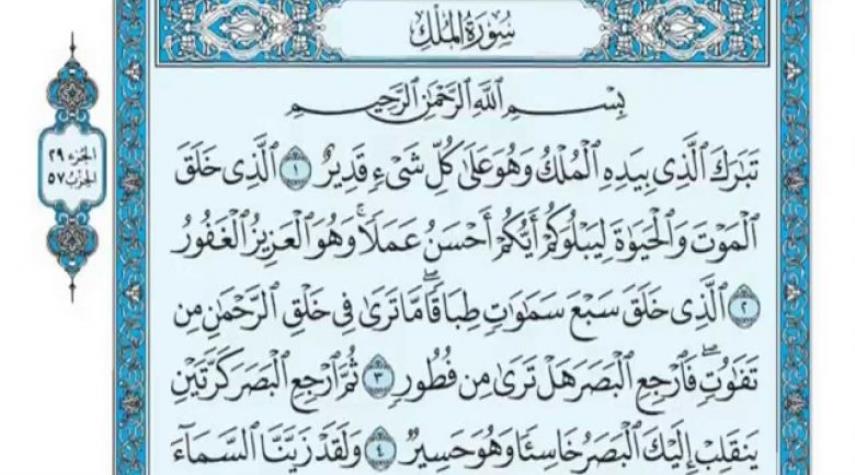 سُورَةُ الْمُلْكِ
بِسْمِ اللَّهِ الرَّحْمَٰنِ الرَّحِيمِ
تَبَٰرَكَ الَّذِى بِيَدِهِ الْمُلْكُ وَهُوَ عَلَىٰ كُلِّ شَىْءٍ قَدِيرٌ ١ الَّذِى خَلَقَ
الْمَوْتَ وَالْحَيَوٰةَ لِيَبْلُوَكُمْ أَيُّكُمْ أَحْسَنُ عَمَلًا ۚ وَهُوَ الْعَزِيزُ الْغَفُورُ
٢ الَّذِى خَلَقَ سَبْعَ سَمَٰوَٰتٍ طِبَاقًا ۖ مَّا تَرَىٰ فِى خَلْقِ الرَّحْمَٰنِ مِن
تَفَٰوُتٍ ۖ فَارْجِعِ الْبَصَرَ هَلْ تَرَىٰ مِن فُطُورٍ ٣ ثُمَّ ارْجِعِ الْبَصَرَ كَرَّتَيْنِ
يَنقَلِبْ إِلَيْكَ الْبَصَرُ خَاسِئًا وَهُوَ حَسِيرٌ ٤ وَلَقَدْ زَيَّنَّا السَّمَآءَ
الجزء ٢٩
الحزب ٥٧